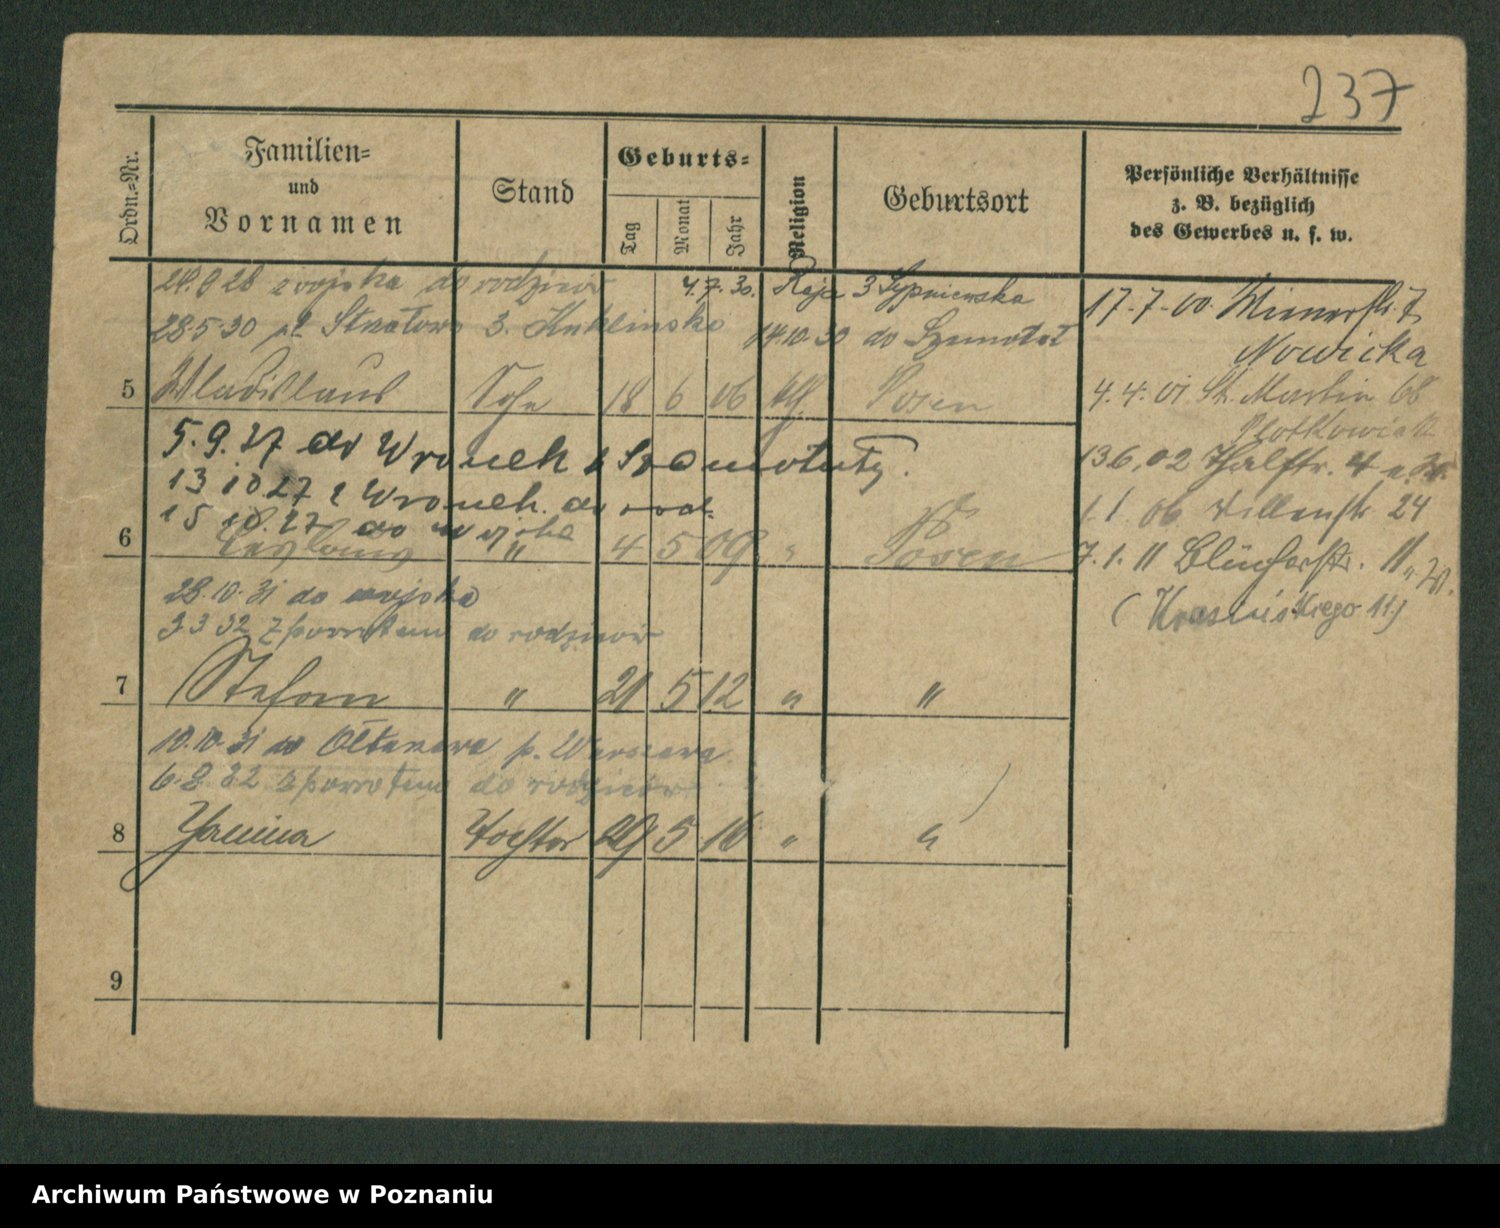 237
Ordn.-Nr.
Familien-
und
Vornamen
Stand
Geburts-
Tag
Monat
Jahr
Religion
Geburtsort
Persönliche Verhältnisse
z. B. bezüglich
des Gewerbes u. s. w.
24.9 28 z wojska do rodziców 4.7.30. 3
28.5.30 3. 14.10.30 do Szamotuł
5 Wladislaus Sohn 18 6 06 Posen
5.9.27 do Wronek Szamotuły.
13 10 27 z Wronek. do rod.
15 10. 27 do wojska
6 " 4 5 09 " Posen
28.10.31 do wojska
3 3 32 z powrotem do rodziców
7 Stefan " 21 5 12 " "
10.10.31 do Ołtarzewa p. Warszawa
6.8.32 z powrotem do rodziców
8 Janina Tochter 29 5 16 " "
9
17.-7.-00. 7
Nowicka
4.4.01 St. Martin 68
13.6.02 Halfstr. 4
1.1. 06 24
7.1.11 Blücherstr. 11
(Krasińskiego 11)
Archiwum Państwowe w Poznaniu